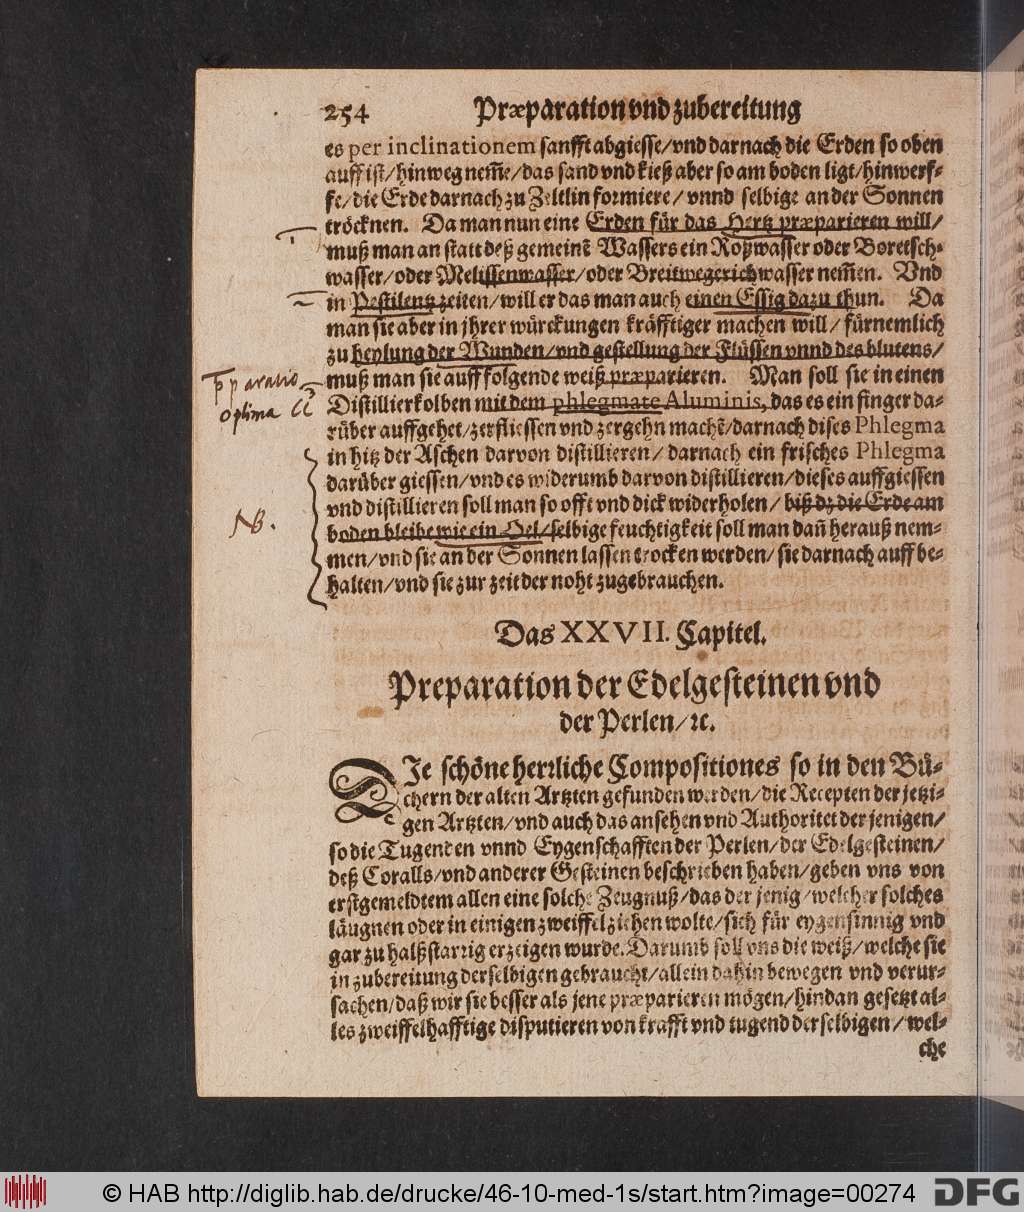 254 Præparation vnd zubereitung
es per inclinationem sanfft abgiesse/vnd darnach die Erden so oben
auff ist/hinweg nem̃e/das sand vnd kieß aber so am boden ligt/hinwerf-
fe/die Erde darnach zu Zeltlin formiere/ vnnd selbige an der Sonnen
tröcknen. Da man nun eine Erden für das Hertz præparieren will/
muß man an statt deß gemeinẽ Wassers ein Roßwasser oder Boretsch-
wasser/oder Melissenwasser/oder Breitwegerichwasser nem̃en. Vnd
in Pestilentz zeiten/will er das man auch einen Essig dazu thun. Da
man sie aber in jhrer würckungen kräfftiger machen will/ fürnemlich
zu heylung der Wunden/vnd gestellung der Flüssen vnnd des blutens/
muß man sie auff folgende weiß præparieren. Man soll sie in einen
Distillierkolben mit dem phlegmate Aluminis, das es ein finger da-
rüber auffgehet/zerfliessen vnd zergehn machẽ/darnach dises Phlegma
in hitz der Aschen darvon distillieren/ darnach ein frisches Phlegma
darüber giessen/vnd es widerumb darvon distillieren/dieses auffgiessen
vnd distillieren soll man so offt vnd dick widerholen/ biß dz die Erde am
boden bleibe wie ein Oel/selbige feuchtigkeit soll man dañ herauß nem-
men/vnd sie an der Sonnen lassen trocken werden/ sie darnach auff be-
halten/vnd sie zur zeit der noht zugebrauchen.
optima
NB.
Das XXVII. Capitel.
Preparation der Edelgesteinen vnd
der Perlen/ ꝛc.
DIe schöne herrliche Compositiones so in den Bü-
chern der alten Artzten gefunden werden/die Recepten der jetzi-
gen Artzten/vnd auch das ansehen vnd Authoritet der jenigen/
so die Tugenden vnnd Eygenschafften der Perlen/der Edelgesteinen/
deß Coralls/vnd anderer Gesteinen beschrieben haben/geben vns von
erstgemeldtem allen eine solche Zeugnuß/das der jenig/welcher solches
läugnen oder in einigen zweiffel ziehen wolte/sich für eygensinnig vnd
gar zu halßstarrig erzeigen wurde. Darumb soll vns die weiß/welche sie
in zubereitung derselbigen gebraucht/allein dahin bewegen vnd verur-
sachen/daß wir sie besser als jene præparieren mögen/hindan gesetzt al-
les zweiffelhafftige disputieren von krafft vnd tugend derselbigen/wel-
che
© HAB http://diglib.hab.de/drucke/46-10-med-1s/start.htm?image=00274
DFG